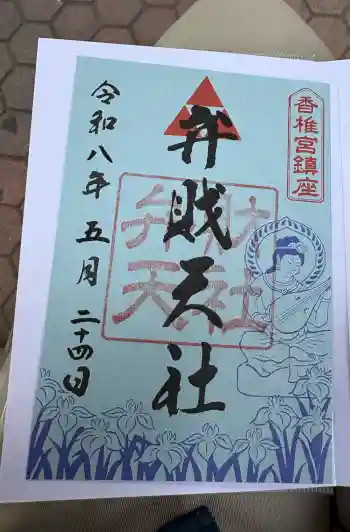 香椎宮鎮座
弁財天社
弁財
天社
令和八年五月二十四日